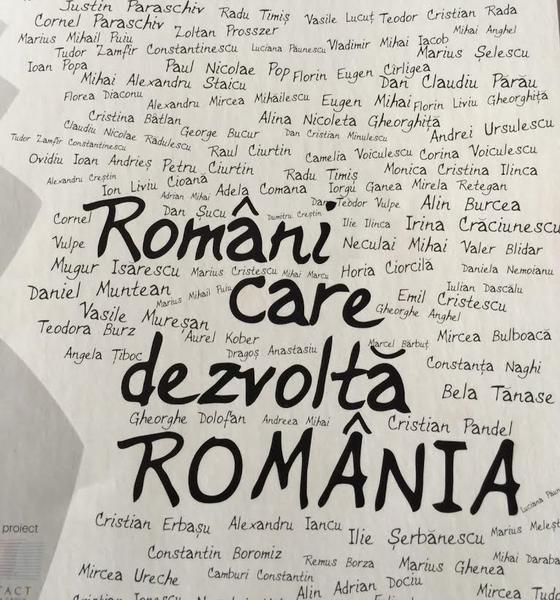 Justin Paraschiv Radu Timiș Vasile Lucuț Teodor Cristian Rada
Cornel Paraschiv Zoltan Prosszer Mihai Anghel
Marius Mihail Puiu Vladimir Mihai Iacob
Tudor Zamfir Constantinescu Luciana Păunescu Marius Șelescu
Ioan Popa Paul Nicolae Pop Florin Eugen Cîrligea
Mihai Alexandru Staicu Dan Claudiu Părău
Florea Diaconu Alexandru Mircea Mihăilescu Eugen Mihai Florin Liviu Gheorghiță
Cristina Bâtlan Alina Nicoleta Gheorghiță
Claudiu Nicolae Rădulescu George Bucur Dan Cristian Minulescu Andrei Ursulescu
Tudor Zamfir Constantinescu Raul Ciurtin Camelia Voiculescu Corina Voiculescu
Ovidiu Ioan Andrieș Petru Ciurtin Radu Timiș Monica Cristina Ilinca
Alexandru Creștin Ion Liviu Cioană Adela Comana Iorgu Ganea Mirela Retegan
Adrian Mihai Dan Teodor Vulpe Alin Burcea
Cornel Vulpe Dan Șucu Dumitru Creștin Ilie Ilinca Irina Crăciunescu
Români
Neculai Mihai Valer Blidar
Mugur Isărescu Marius Cristescu Mihai Marcu Horia Ciorcilă Daniela Nemoianu
Daniel Muntean Marius Mihail Puiu
care
Emil Cristescu Iulian Dascălu
Vasile Mureșan Gheorghe Anghel
Teodora Burz Aurel Kober Marcel Bărbuț Mircea Bulboacă
Angela Țiboc Dragoș Anastasiu Constanța Naghi
dezvoltă
Bela Tănase
Gheorghe Dolofan Andreea Mihai Cristian Pandel
ROMÂNIA
Luciana
Cristian Erbașu Alexandru Iancu Ilie Șerbănescu Marius
proiect
Constantin Boromiz Remus Borza Marius Ghenea Mihai Daraba
Mircea Ureche Camburi Constantin Alin Adrian Dociu Mircea
TACT
Cristian